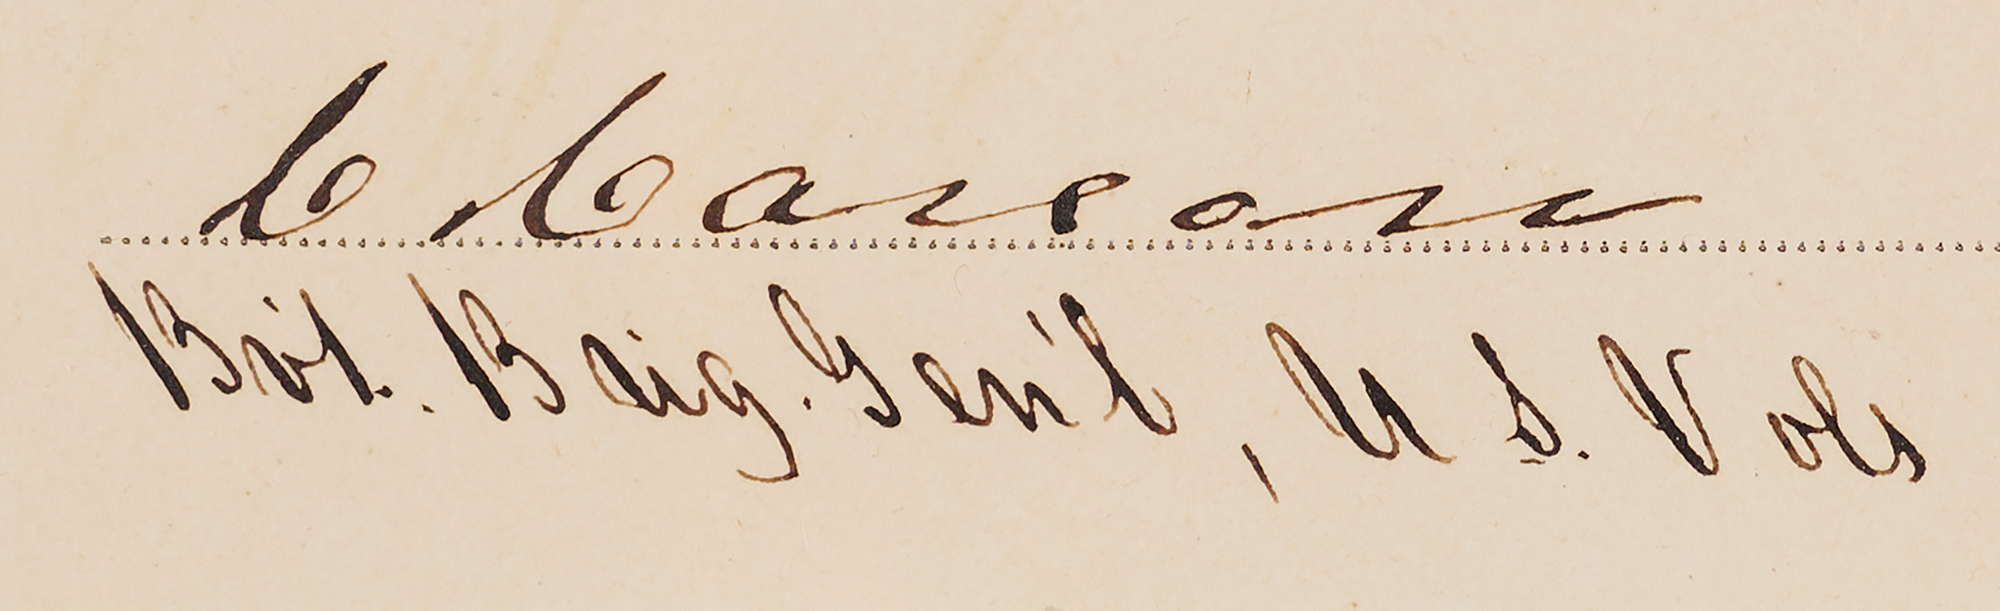 C Carson
Bvt. Brig. Gen'l, U S. Vols